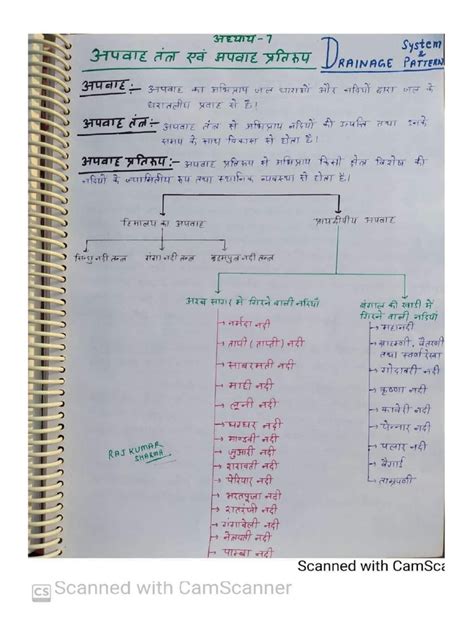 अध्याय-7
अपवाह तंत्र एवं अपवाह प्रतिरूप
DRAINAGE System & PATTERN
अपवाह :- अपवाह का अभिप्राय जल धाराओं और नदियों द्वारा जल के
धरातलीय प्रवाह से है।
अपवाह तंत्र :- अपवाह तंत्र से अभिप्राय नदियों की उत्पत्ति तथा उनके
समय के साथ विकास से होता है।
अपवाह प्रतिरूप :- अपवाह प्रतिरूप से अभिप्राय किसी क्षेत्र विशेष की
नदियों के ज्यामितीय रूप तथा स्थानिक व्यवस्था से होता है।
हिमालय का अपवाह
प्रायद्वीपीय अपवाह
सिन्धु नदी तन्त्र
गंगा नदी तन्त्र
ब्रह्मपुत्र नदी तन्त्र
अरब सागर में गिरने वाली नदियाँ
नर्मदा नदी
तापी (ताप्ती) नदी
साबरमती नदी
माही नदी
लूनी नदी
घग्घर नदी
माण्डवी नदी
जुआरी नदी
शरावती नदी
पेरियार नदी
भरतपूजा नदी
शतरंजी नदी
गंगावेली नदी
नदी
पाम्बा नदी
बंगाल की खाड़ी में
गिरने वाली नदियाँ
महानदी
ब्राह्मणी, वैतरणी
तथा स्वर्ण रेखा
गोदावरी नदी
कृष्णा नदी
कावेरी नदी
पेन्नार नदी
पलार नदी
वैगई
ताम्रपर्णी
RAJ KUMAR
SHARMA
Scanned with CamSca
CS Scanned with CamScanner